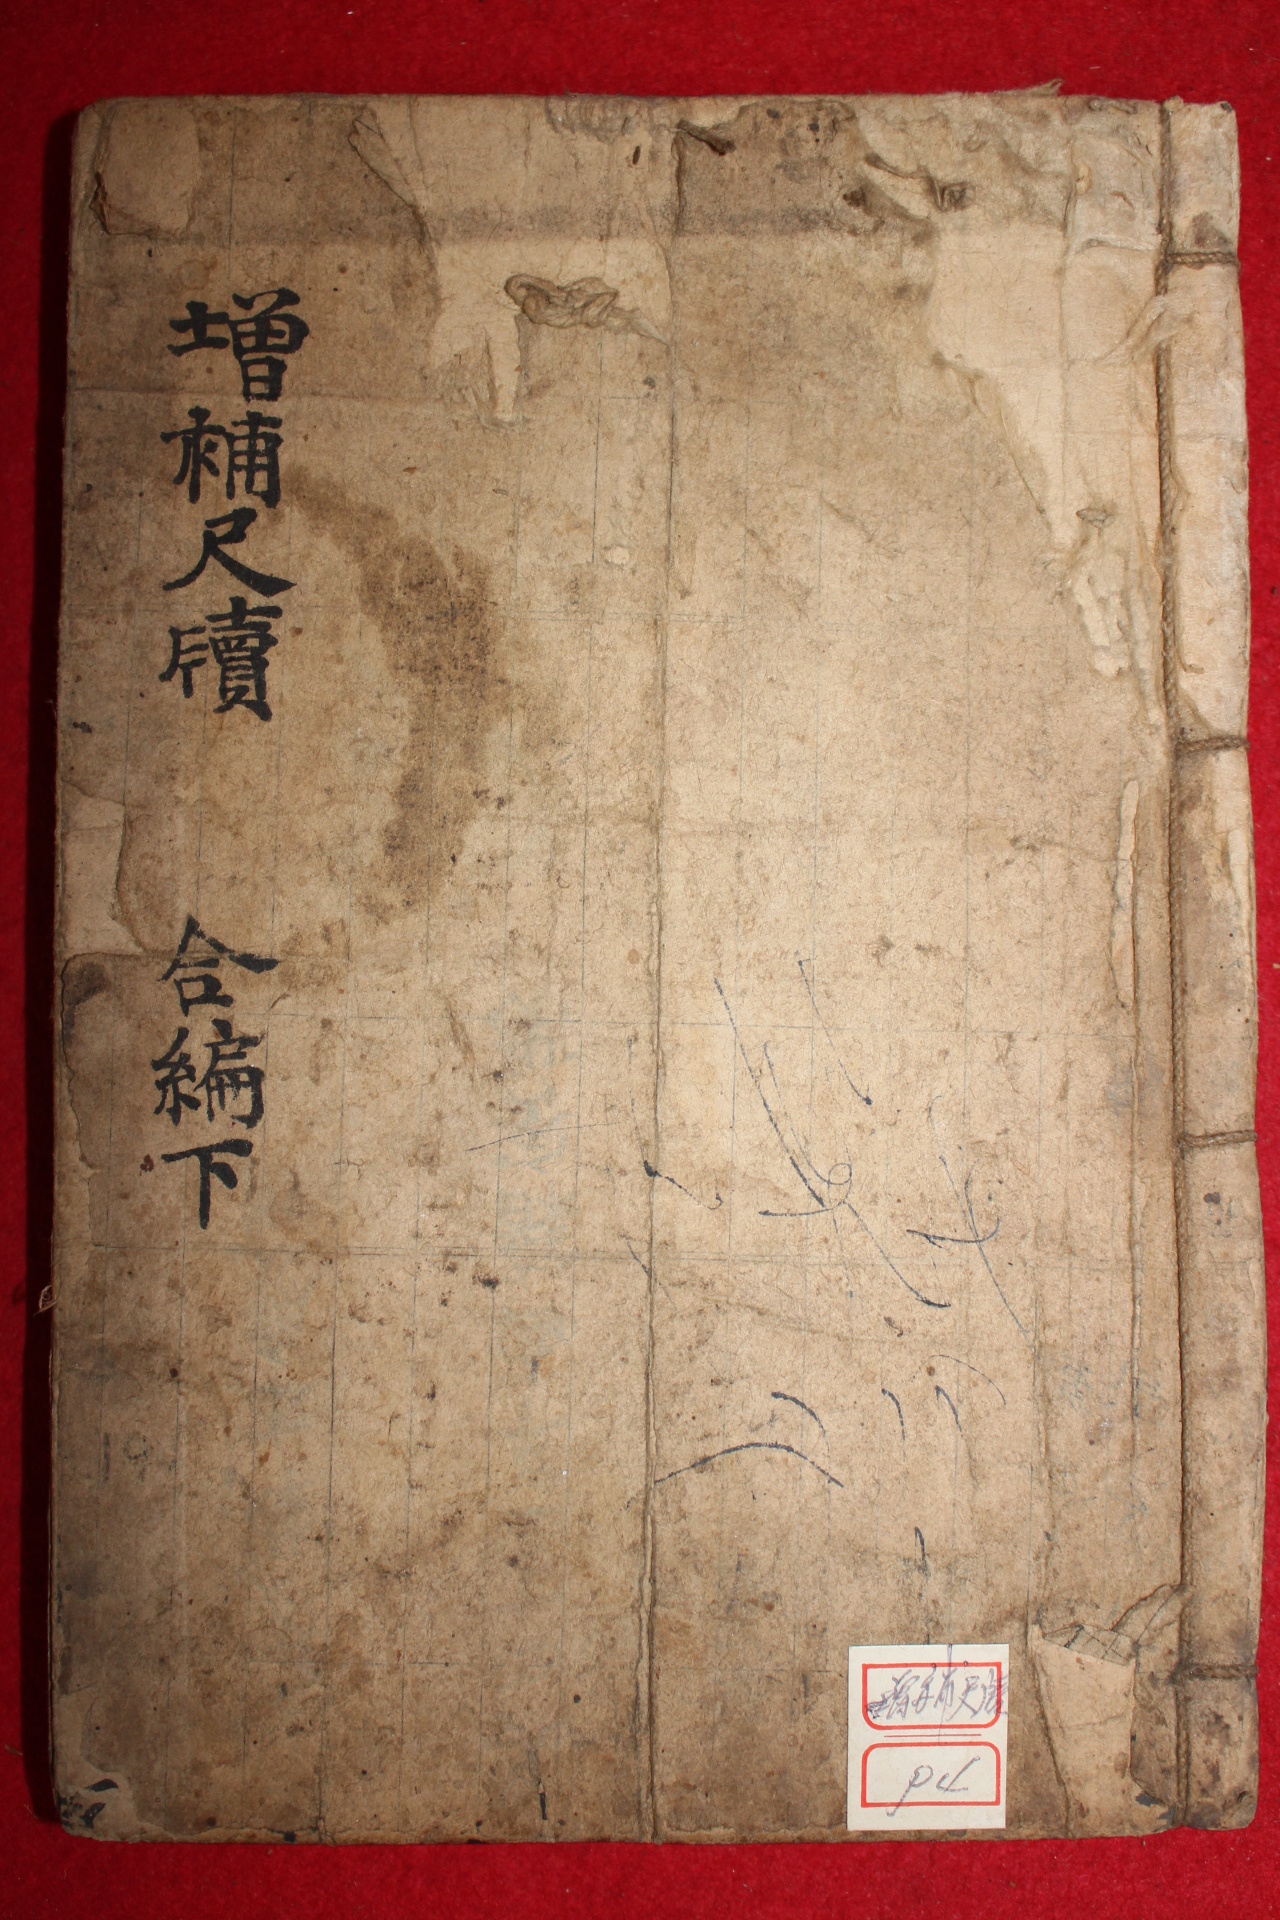 增補尺牘 合編下
增補尺牘